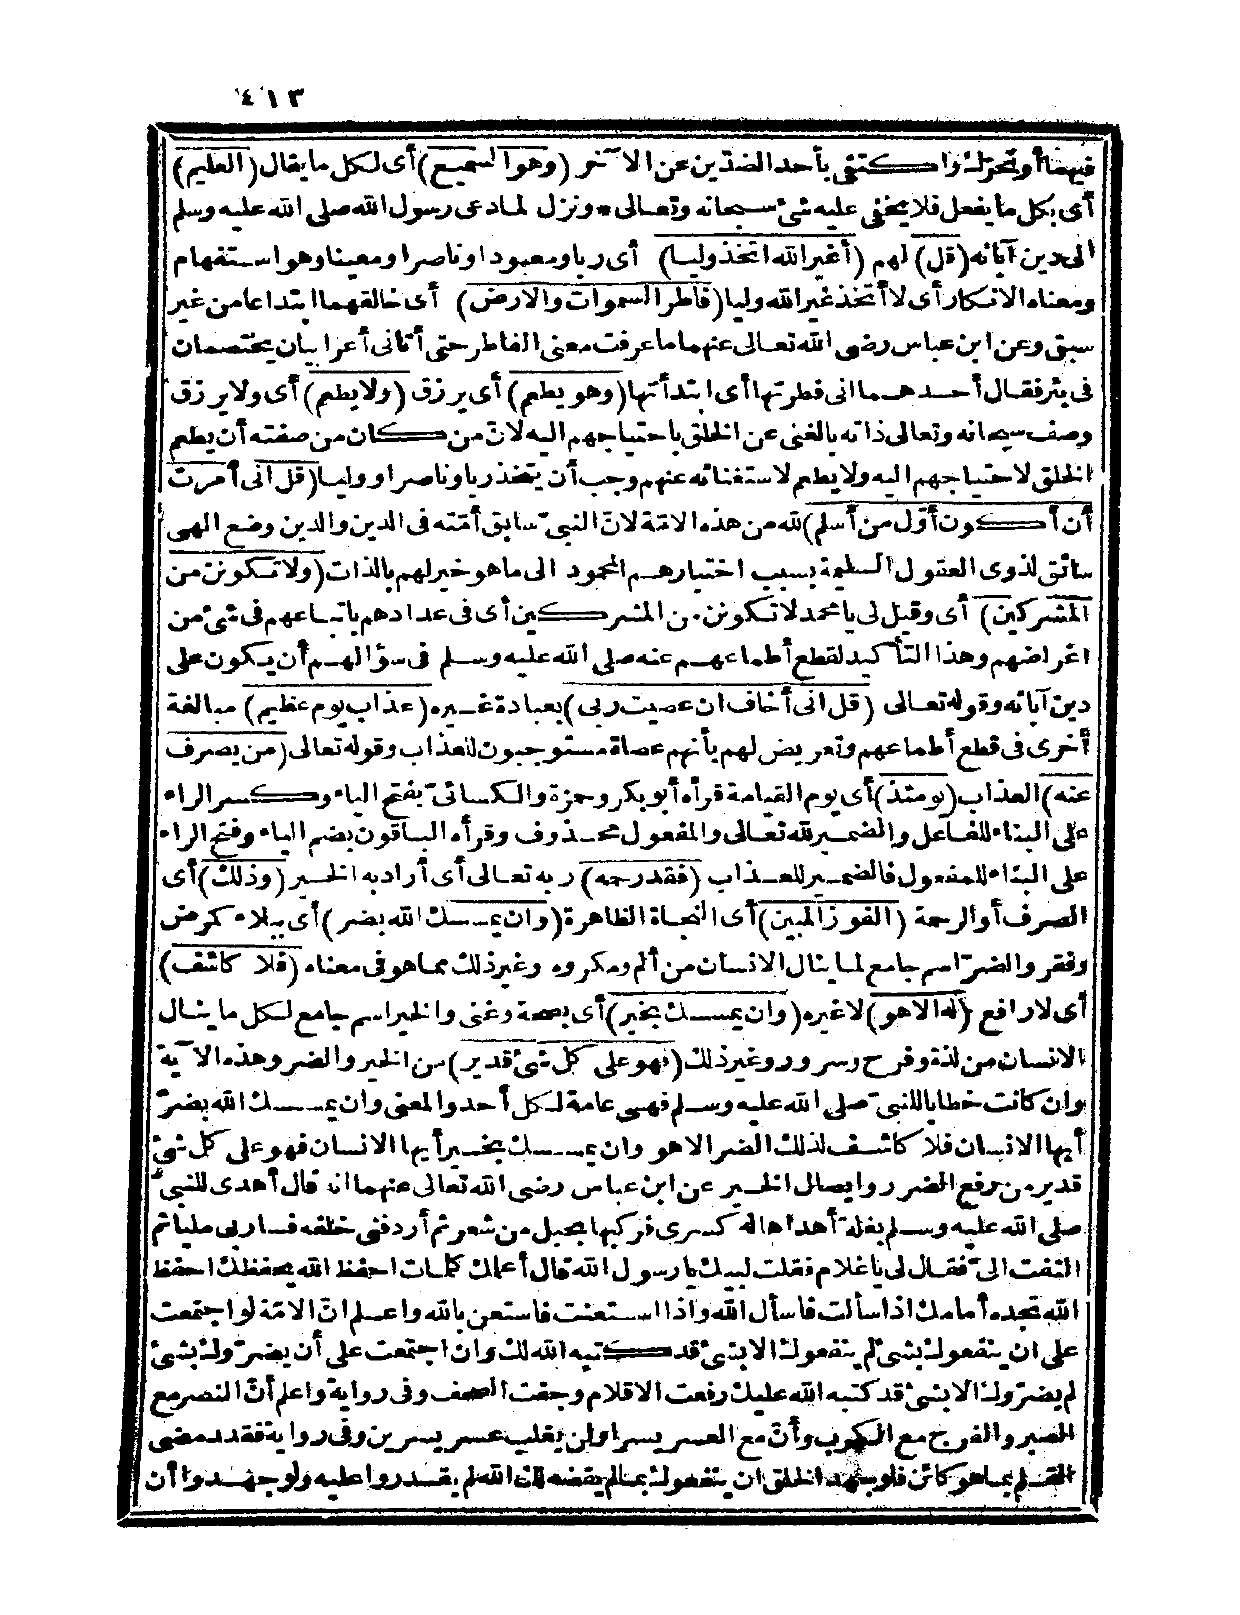 ٤١٣
فيهما أو تحرّك واكتفى بأحد الضدّين عن الآخر (وهو السميع) أى لكل ما يقال (العليم)
أى بكل ما يفعل فلا يخفى عليه شئ سبحانه وتعالى * ونزل لما دعى رسول الله صلى الله عليه وسلم
الى دين آبائه (قل) لهم (أغير الله اتخذ وليا) أى ربا ومعبودا وناصرا ومعينا وهو استفهام
ومعناه الانكار أى لا أتخذ غير الله وليا (فاطر السموات والارض) أى خالقهما ابتداعا من غير
سبق وعن ابن عباس رضى الله تعالى عنهما ما عرفت معنى الفاطر حتى أتانى أعرابيان يختصمان
فى بئر فقال أحدهما انى فطرتها أى ابتدأتها (وهو يطعم) أى يرزق (ولا يطعم) أى ولا يرزق
وصف سبحانه وتعالى ذاته بالغنى عن الخلق باحتياجهم اليه لانّ من كان من صفته أن يطعم
الخلق لاحتياجهم اليه ولا يطعم لاستغنائه عنهم وجب أن يتخذ ربا وناصرا ووليا (قل انى أمرت
أن أكون أوّل من أسلم) لله من هذه الامّة لانّ النبىّ سابق أمّته فى الدين والدين وضع الهى
سائق لذوى العقول السليمة بسبب اختيارهم المحمود الى ما هو خير لهم بالذات (ولا تكونن من
المشركين) أى وقيل لى يا محمد لا تكونن من المشركين أى فى عدادهم باتباعهم فى شئ من
اغراضهم وهذا التأكيد لقطع أطماعهم عنه صلى الله عليه وسلم فى سؤالهم أن يكون على
دين آبائه وقوله تعالى (قل انى أخاف ان عصيت ربى) بعبادة غيره (عذاب يوم عظيم) مبالغة
أخرى فى قطع أطماعهم وتعريض لهم بأنهم عصاة مستوجبون للعذاب وقوله تعالى (من يصرف
عنه) العذاب (يومئذ) أى يوم القيامة قرأه أبو بكر وحمزة والكسائىّ بفتح الياء وكسر الراء
على البناء للفاعل والضمير لله تعالى والمفعول محذوف وقرأه الباقون بضم الياء وفتح الراء
على البناء للمفعول فالضمير للعذاب (فقد رحمه) ربه تعالى أى أراد به الخير (وذلك) أى
الصرف أو الرحمة (الفوز المبين) أى النجاة الظاهرة (وان يمسسك الله بضر) أى ببلاء كمرض
وفقر والضرّ اسم جامع لما ينال الانسان من ألم ومكروه وغير ذلك مما هو فى معناه (فلا كاشف)
أى لا رافع (له الا هو) لا غيره (وان يمسسك بخير) أى بصحة وغنى والخير اسم جامع لكل ما ينال
الانسان من لذة وفرح وسرور وغير ذلك (فهو على كل شئ قدير) من الخير والضر وهذه الآية
وان كانت خطابا للنبىّ صلى الله عليه وسلم فهى عامة لكل أحد والمعنى وان يمسسك الله بضرّ
أيها الانسان فلا كاشف لذلك الضر الا هو وان يمسسك بخير أيها الانسان فهو على كل شئ
قدير من رفع الضرر وايصال الخير عن ابن عباس رضى الله تعالى عنهما انه قال أهدى للنبىّ
صلى الله عليه وسلم بغلة أهداها له كسرى فركبها بحبل من شعر ثم أردفنى خلفه فسار بى مليا ثم
التفت الىّ فقال لى يا غلام فقلت لبيك يا رسول الله قال أعلمك كلمات احفظ الله يحفظك احفظ
الله تجده أمامك اذا سألت فاسأل الله واذا استعنت فاستعن بالله واعلم انّ الامّة لو اجتمعت
على ان ينفعوك بشئ لم ينفعوك الا بشئ قد كتبه الله لك وان اجتمعت على أن يضرّوك بشئ
لم يضرّوك الا بشئ قد كتبه الله عليك رفعت الاقلام وجفت الصحف وفى رواية واعلم أنّ النصر مع
الصبر والفرج مع الكرب وأنّ مع العسر يسرا ولن يغلب عسر يسرين وفى رواية فقد مضى
القلم بما هو كائن فلو جهد الخلق ان ينفعوك بما لم يقضه لك الله لم يقدروا عليه ولو جهدوا أن